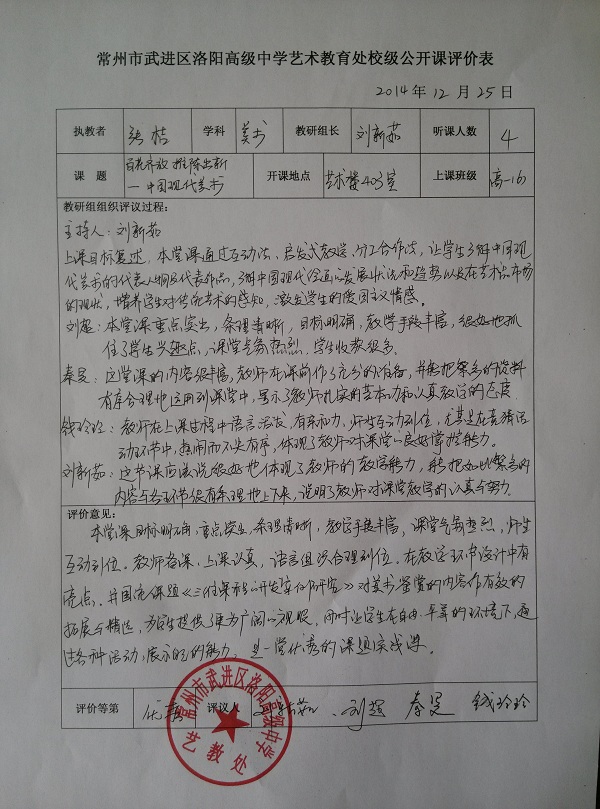 常州市武进区洛阳高级中学艺术教育处校级公开课评价表
2014年12月25日
执教者 张桔 学科 美术 教研组长 刘新茹 听课人数 4
课题 百花齐放 推陈出新 —中国现代美术 开课地点 艺术楼403室 上课班级 高一(6)
教研组组织评议过程:
主持人:刘新茹
上课目标复述:本堂课通过互动法、启发式教学、分工合作法,让学生了解中国现
代美术的代表人物及代表作品,了解中国现代绘画的发展状况和趋势以及在艺术品市场
的现状,培养学生对传统艺术的感知,激发学生的爱国主义情感。
刘超:本堂课重点突出,条理清晰,目标明确,教学手段丰富,很好地抓
住了学生兴趣点,课堂气氛热烈,学生收获很多。
秦昊:这堂课的内容很丰富,教师在课前作了充分的准备,并能把繁多的资料
有条合理地运用到课堂中,显示了教师扎实的基本功和认真教学的态度
钱玲玲:教师在上课过程中语言活泼,有亲和力,师生互动到位,尤其是在竞猜活
动环节中,热闹而不失有序,体现了教师对课堂的良好掌控能力。
刘新茹:这节课应该说很好地体现了教师的教学能力,能把如此繁多的
内容与各环节很有条理地上下来,说明了教师对课堂教学的认真与努力。
评价意见:
本堂课目标明确,重点突出,条理清晰,教学手段丰富,课堂气氛热烈,师生
互动到位。教师备课、上课认真,语言组织合理到位。在教学环节设计中有
亮点。并围绕课题《三级课程的开发实施研究》对美术鉴赏的内容作有效的
拓展与精选,为学生提供了更为广阔的视眼,同时让学生在自由、平等的环境下,通
过各种活动,展示自己的能力。是一堂优秀的课题实践课。
评价等第 优秀 评议人 刘新茹、刘超 秦昊 钱玲玲
常州市武进区洛阳高级中学
艺教处